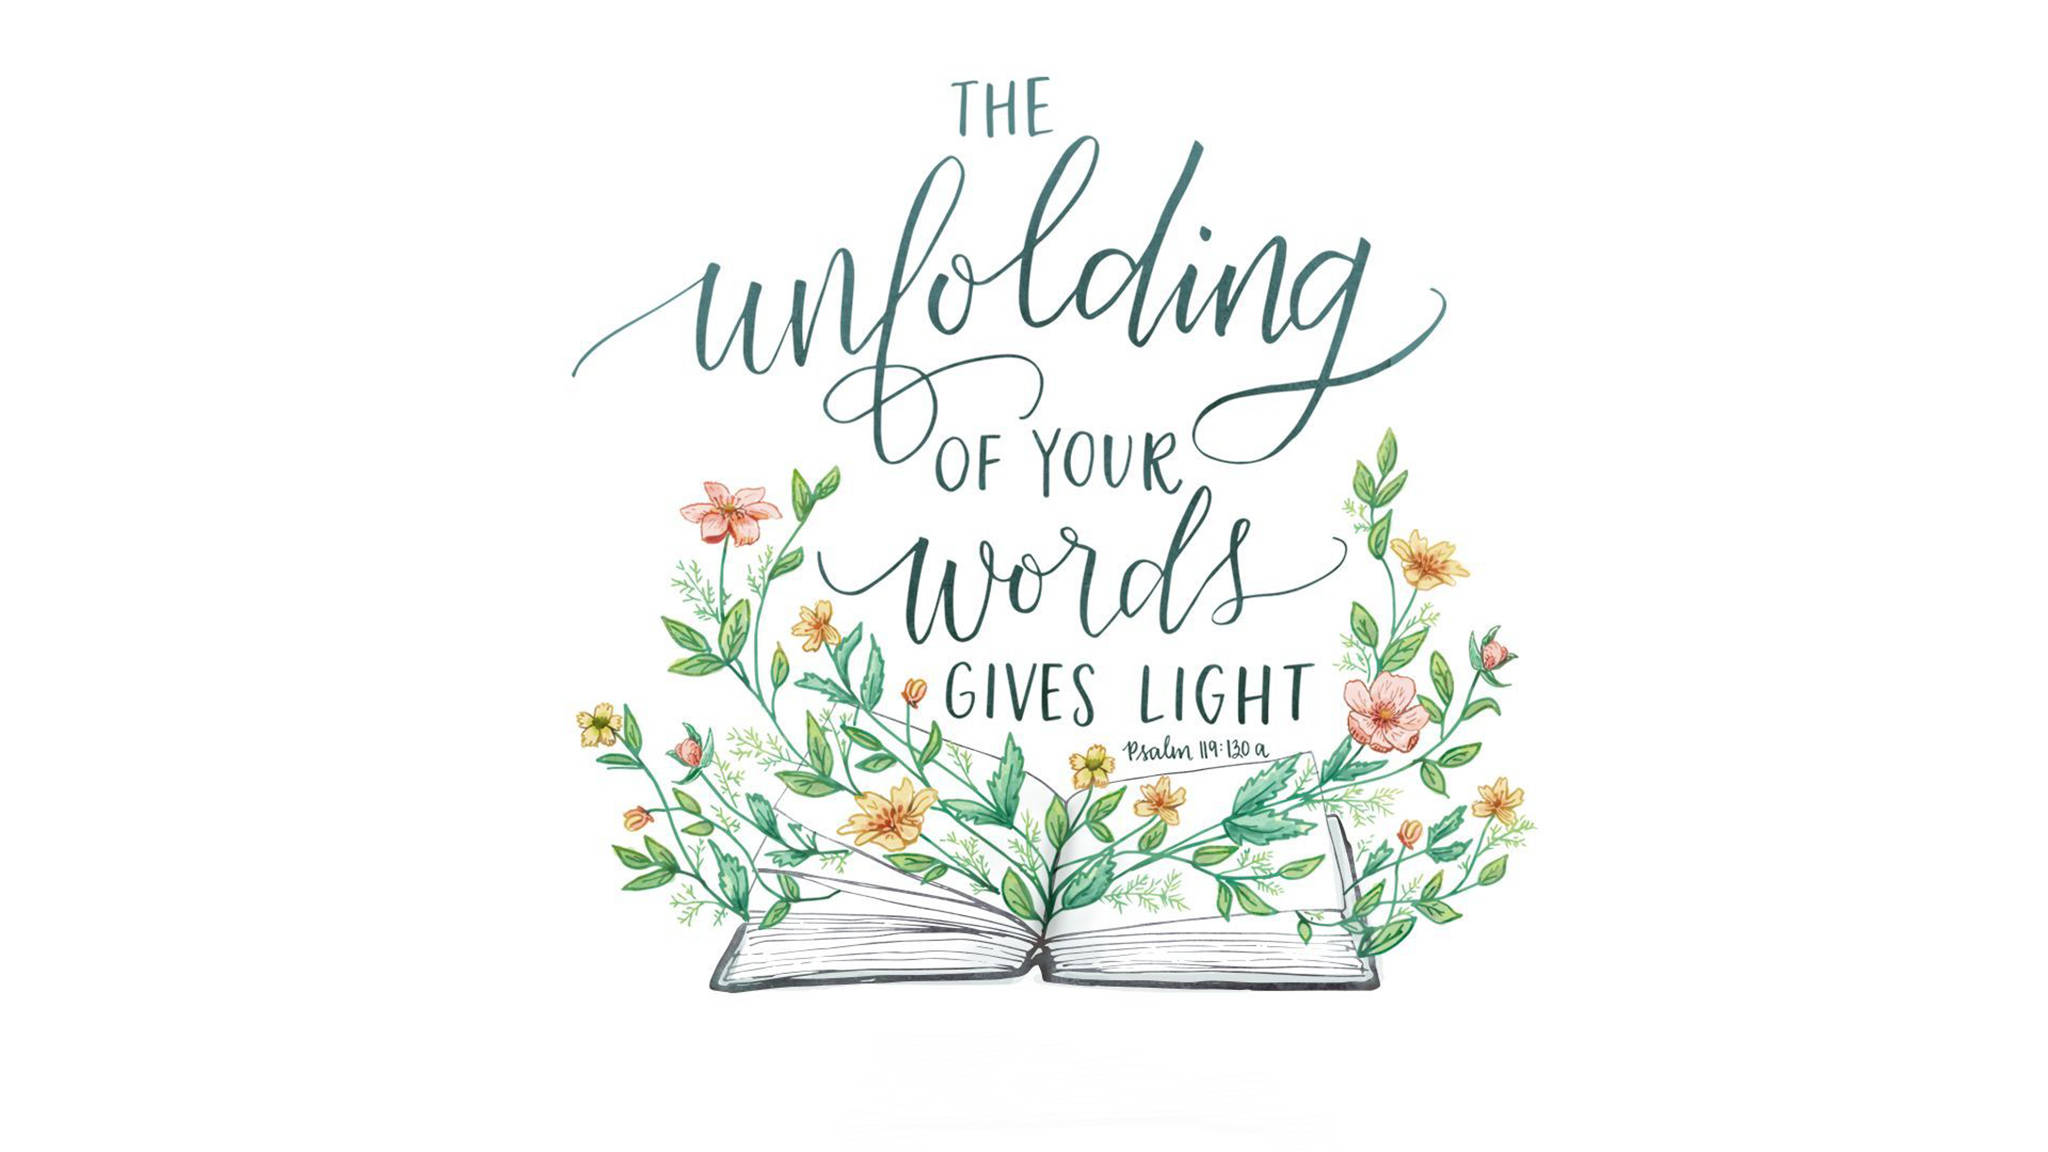 THE
unfolding
OF YOUR
words
GIVES LIGHT
Psalm 119:130 a